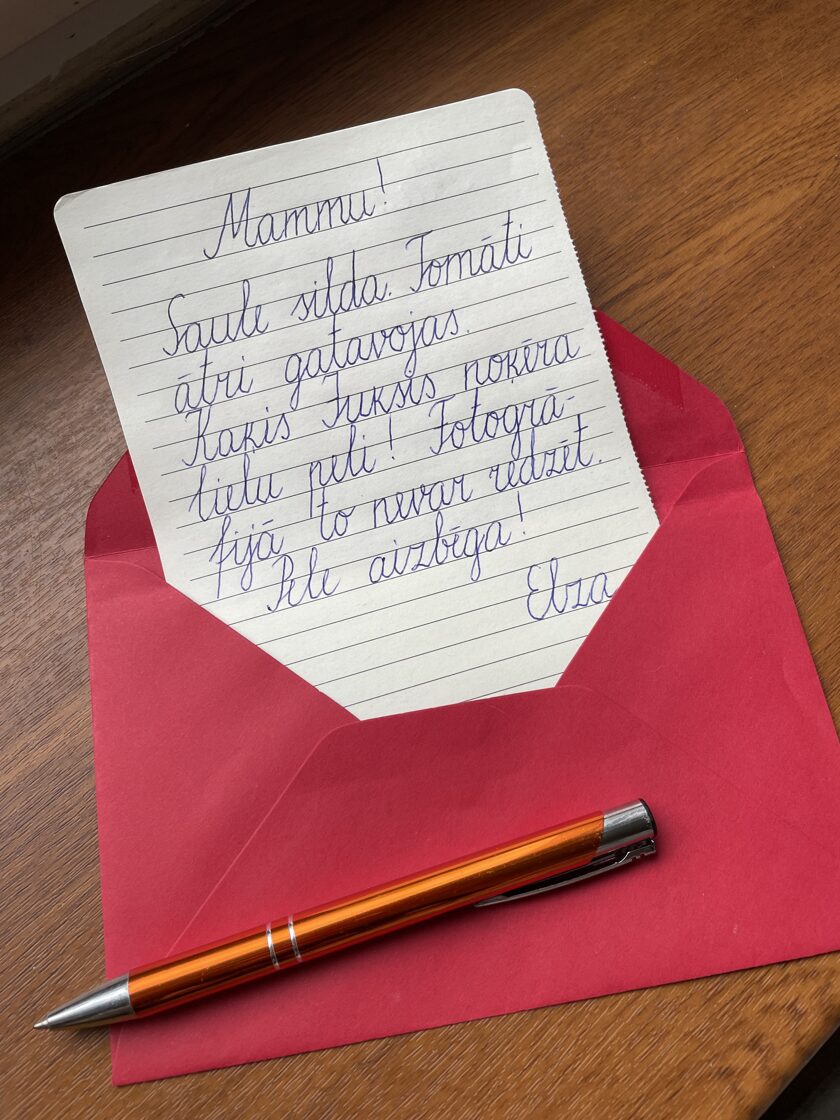 Mammu!
Saule silda. Tomāti
ātri gatavojas.
Kaķis Fuksis noķēra
lielu peli! Fotogrā-
fijā to nevar redzēt.
Pele aizbēga!
Elza